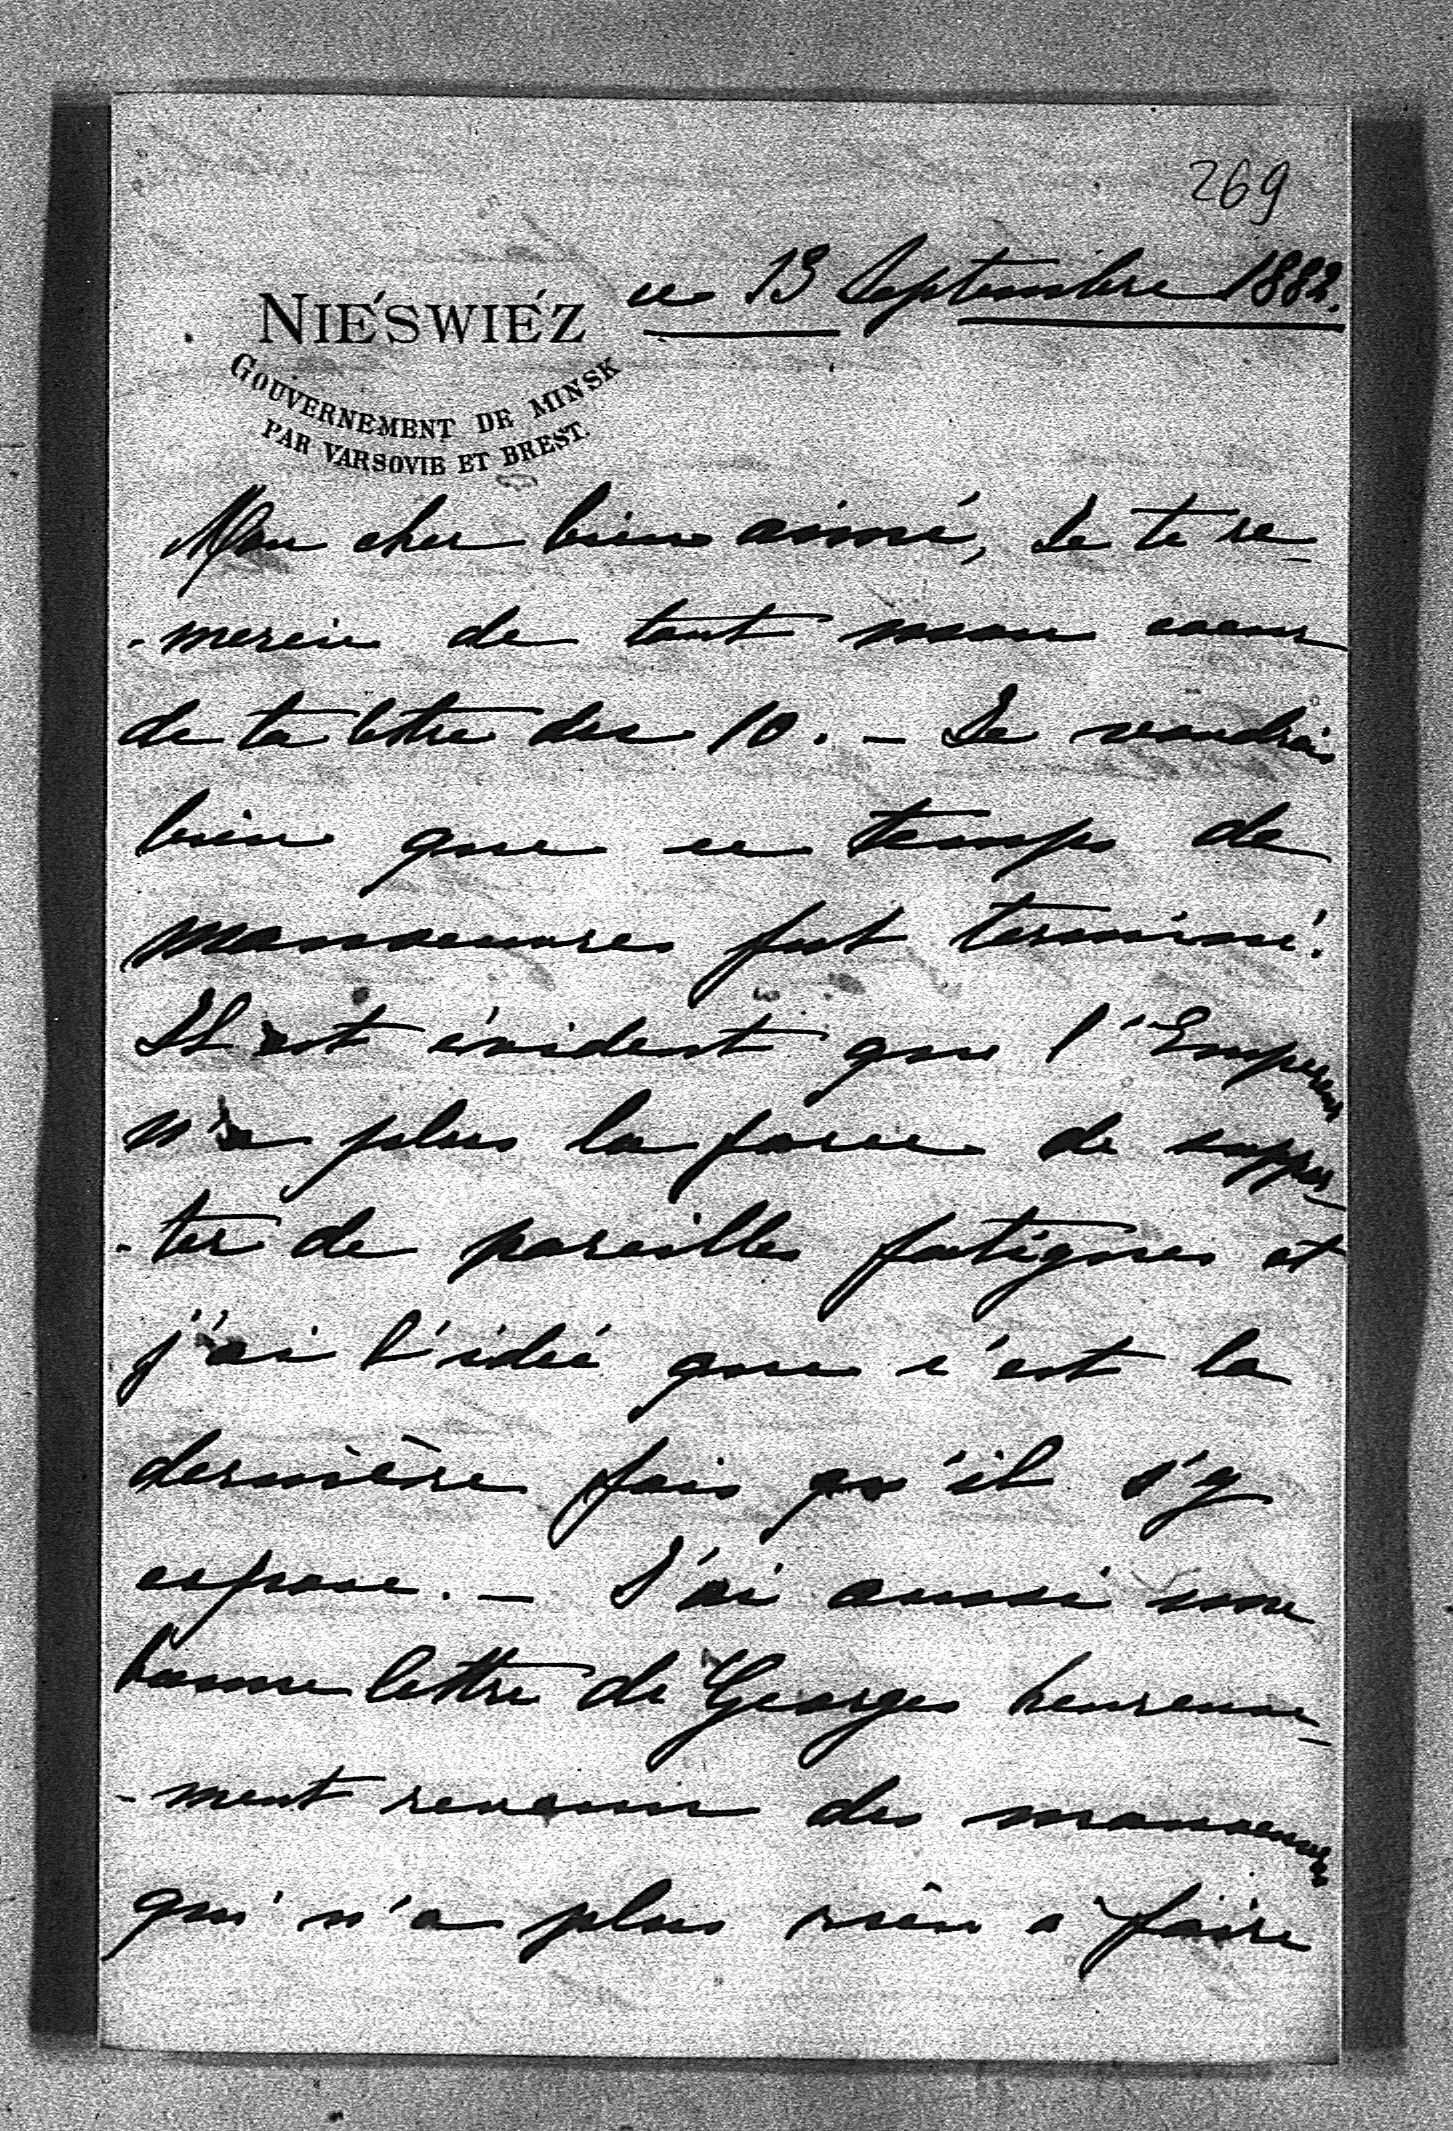 269
ce 13 Septembre 1882.
NIEŚWIEŹ
GOUVERNEMENT DE MINSK
PAR VARSOVIE ET BREST.
Mon cher bien aimé, Je te re-
-mercie de tout mon coeur
de ta lettre des 10. - Je voudrais
bien que ce temps de
manoeuvres fut terminé.
Il est évident que l'Empereur
n'a plus la force de suppor-
-ter de pareilles fatigues et
j'ai l'idée que c'est la
dernière fois qu'il s'y
expose. - J'ai aussi une
bonne lettre de Georges heureuse-
-ment revenu des manoeuvres
qui n'a plus rien à faire